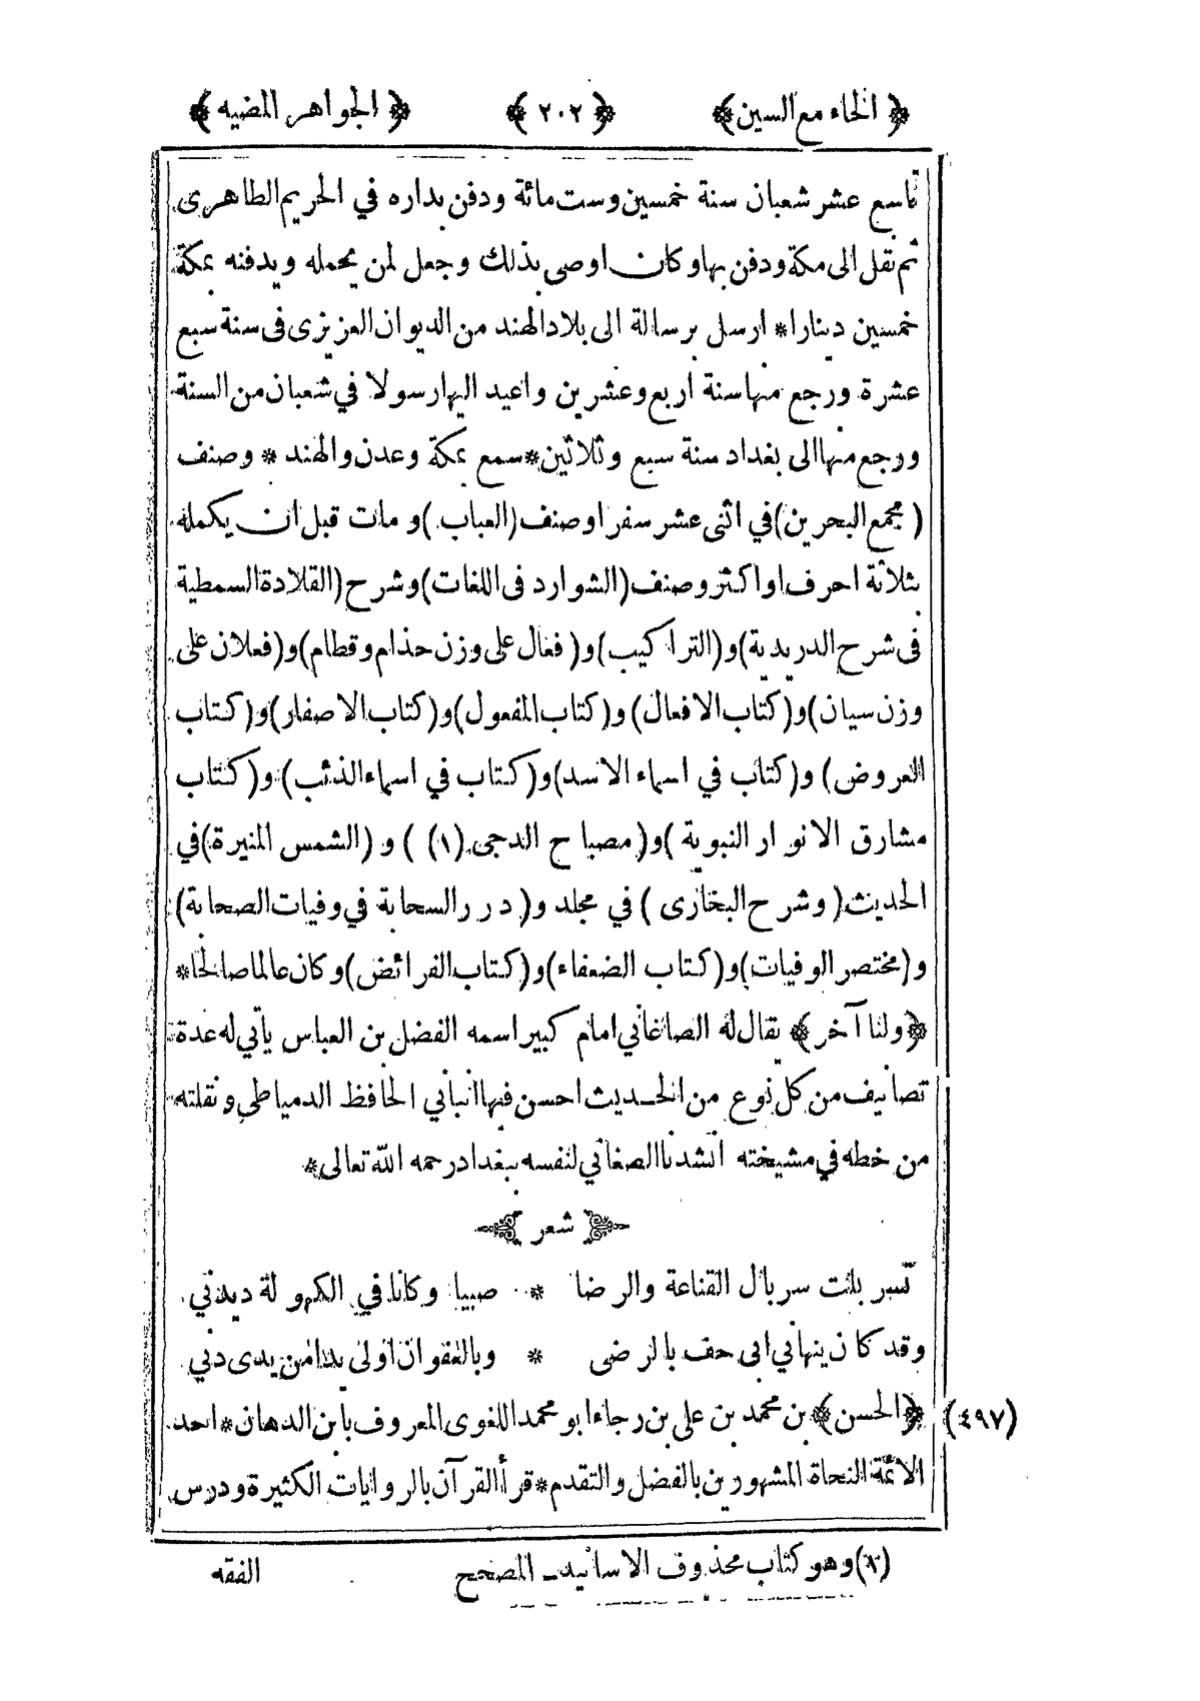 ﴿الحاء مع السين﴾ ﴿٢٠٢﴾ ﴿الجواهر المضيه﴾
تاسع عشر شعبان سنة خمسين وست مائة ودفن بداره في الحريم الطاهرى
ثم نقل الى مكة ودفن بها وكان اوصى بذلك وجعل لمن يحمله ويدفنه بمكة
خمسين دينارا* ارسل برسالة الى بلاد الهند من الديوان العزيزى فى سنة سبع
عشرة ورجع منها سنة اربع وعشرين واعيد اليها رسولا في شعبان من السنة
ورجع منها الى بغداد سنة سبع وثلاثين*سمع بمكة وعدن والهند * وصنف
(مجمع البحرين) في اثنى عشر سفرا وصنف (العباب) و مات قبل ان يكمله
بثلاثة احرف او اكثر وصنف (الشوارد فى اللغات) وشرح (القلادة السمطية
فى شرح الدريدية) و (التراكيب) و (فعال على وزن حذام وقطام) و (فعلان على
وزن سيان) و (كتاب الافعال) و (كتاب المفعول) و (كتاب الاصفار) و (كتاب
العروض) و (كتاب في اسماء الاسد) و (كتاب في اسماء الذئب) و (كتاب
مشارق الانوار النبوية) و (مصباح الدجى (١) ) و (الشمس المنيرة) في
الحديث (وشرح البخارى) في مجلد و (درر السحابة في وفيات الصحابة)
و (مختصر الوفيات) و (كتاب الضعفاء) و (كتاب الفرائض) وكان عالما صالحا*
﴿ولنا آخر﴾ يقال له الصاغاني امام كبير اسمه الفضل بن العباس يأتي له عدة
تصانيف من كل نوع من الحديث احسن فيها انبأني الحافظ الدمياطي ونقلته
من خطه في مشيخته انشدنا الصغاني لنفسه ببغداد رحمه الله تعالى*
﴿شعر﴾
تسربلت سربال القناعة والرضا * صبيا وكانا في الكهولة ديدني
وقد كان ينهاني ابى حف بالرضى * وبالعفو ان اولى يدا من يدى دني
(٤٩٧) ﴿الحسن﴾ بن محمد بن علي بن رجاء ابو محمد اللغوى المعروف بابن الدهان*احد
الائمة النحاة المشهورين بالفضل والتقدم*قرأ القرآن بالروايات الكثيرة ودرس
(١) وهو كتاب محذوف الاسانيد ــ المصحح الفقه